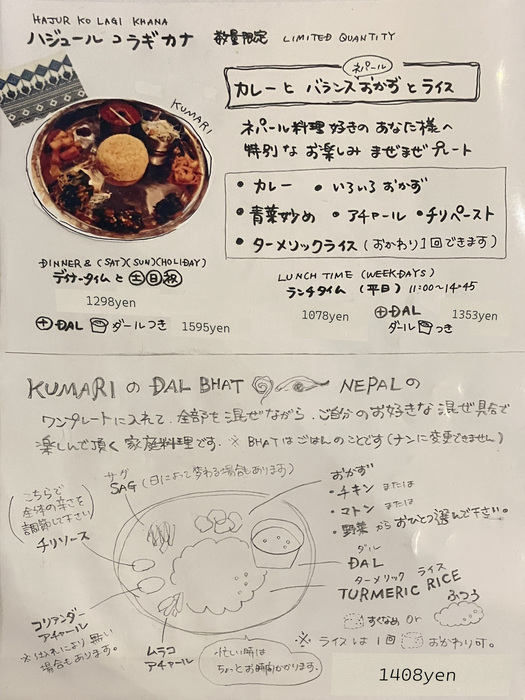 HAJUR KO LAGI KHANA
ハジュール コ ラギ カナ 数量限定 LIMITED QUANTITY
KUMARI
ネパール
カレーと バランスおかずとライス
ネパール料理好きのあなた様へ
特別な お楽しみ まぜまぜプレート
• カレー • いろいろおかず
• 青菜炒め • アチャール • チリペースト
• ターメリックライス (おかわり1回できます)
DINNER & (SAT)(SUN)(HOLIDAY)
ディナータイムと 土 日 祝
1298yen
+ DAL ダールつき 1595yen
LUNCH TIME (WEEKDAYS)
ランチタイム (平日) 11:00〜14:45
1078yen
+ DAL 1353yen
ダール つき
KUMARI の DAL BHAT NEPALの
ワンプレートに入れて、全部を混ぜながら、ご自分のお好きな混ぜ具合で
楽しんで頂く家庭料理です。※ BHATはごはんのことです(ナンに変更できません)
サグ
SAG (日によって変わる場合もあります)
こちらで
全体の辛さを
調節して下さい
チリソース
おかず
・チキン または
・マトン または
・野菜 からおひとつ選んで下さい。
ダル
DAL
ターメリック ライス
TURMERIC RICE
すくなめ or ふつう
※ ライスは1回 おかわり可。
コリアンダー
アチャール
※仕入れにより無い
場合もあります。
ムラコ
アチャール
忙しい時は
ちょっとお時間かかります。
1408yen